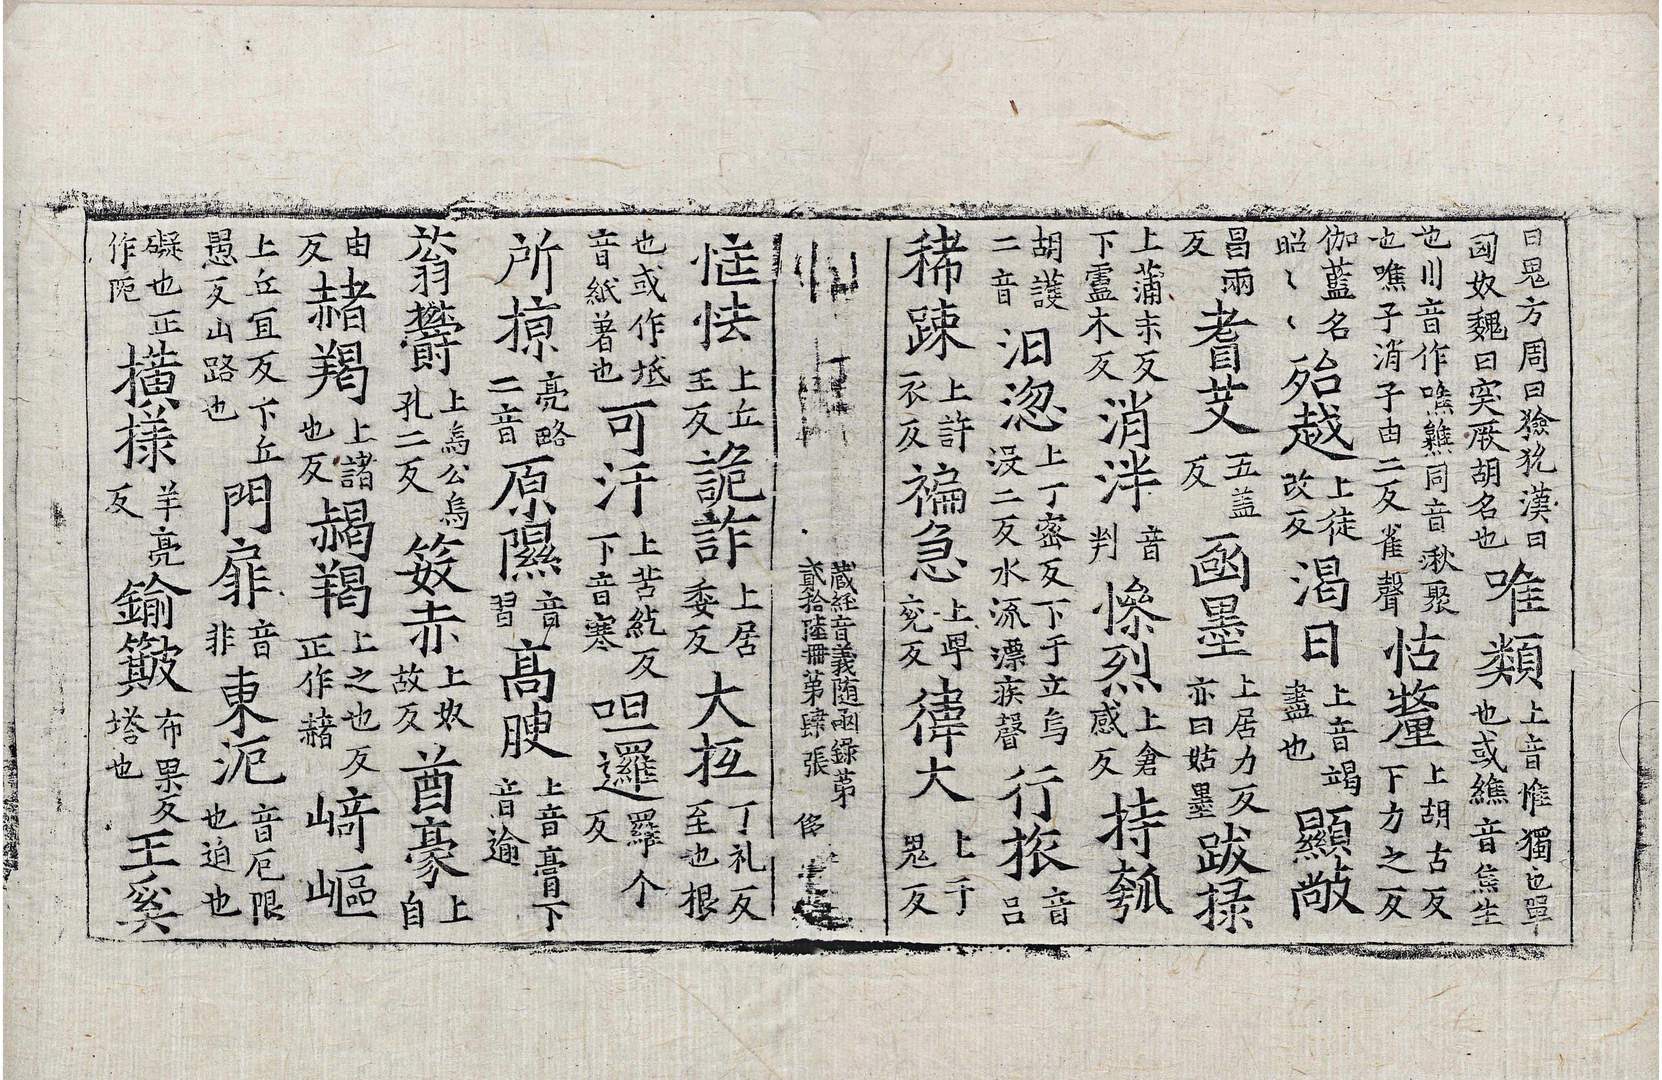 曰鬼方周曰獫狁漢曰
匈奴魏曰突厥胡名也
唯類
上音惟獨也單
也或鷦音焦生
也川音作噍䧿同音湫聚
也噍子消子由二反雀聲
怙釐
上胡古反
下方之反
伽藍名
昭〻〻
殆越
上徒
改反
渴日
上音竭
盡也
顯敞
昌兩
反
耆艾
五盖
反
亟墨
上居力反
亦曰姑墨
跋掾
上蒲末反
下靈木反
消泮
音
判
慘烈
上倉
感反
持瓠
胡護
二音
汨淴
上丁密反下于立烏
没二反水流漂疾聲
行旅
音
呂
稀踈
上許
衣反
褊急
上卑
兖反
偉大
上于
鬼反
藏經音義随函録第
貳拾陸冊第肆張
恇怯
上丘
王反
詭詐
上居
委反
大柢
丁礼反
至也根
也或作坻
音紙着也
可汗
上苦紇反
下音寒
呾邏
羅个
反
所掠
亮略
二音
原隰
音
習
髙腴
上音膏下
音逾
蓊欝
上烏公烏
孔二反
笯赤
上奴
故反
酋豪
上
自
由
反
赭羯
上諸
也反
赭羯
上之也反
正作赭
崎嶇
上丘冝反下丘
愚反山路也
門扉
音
非
東沍
音厄限
也迫也
礙也正
作阨
橫樣
羊亮
反
鍮簸
布果反
塔也
王奚